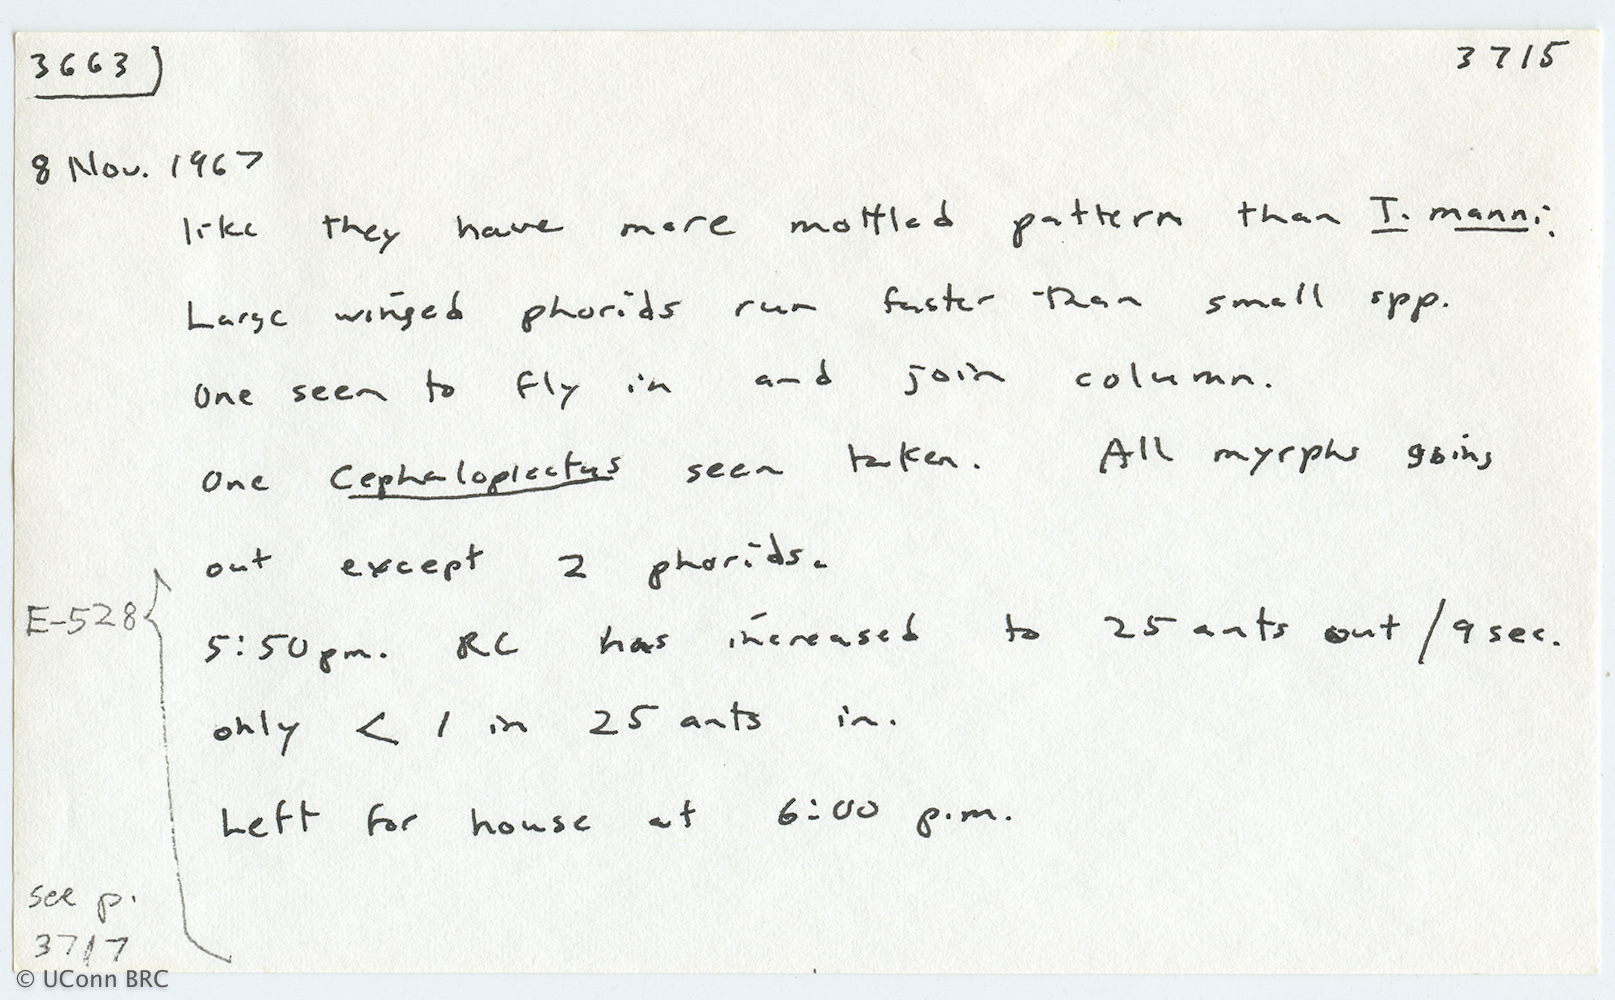 3663)
3715
8 Nov. 1967
like they have more mottled pattern than T. manni.
Large winged phorids run faster than small spp.
One seen to fly in and join column.
One Cephaloplectus seen taken. All myrphs going
out except 2 phorids.
E-528
5:50 pm. RC has increased to 25 ants out / 9 sec.
only < 1 in 25 ants in.
Left for house at 6:00 p.m.
see p.
3717
© UConn BRC